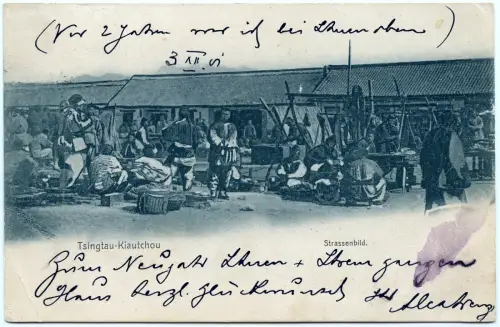 (Vor 2 Jahren war ich bei Ihnen oben)
3 XII 05
Tsingtau-Kiautchou
Strassenbild.
Zum Neujahr Ihnen + Ihrem ganzen
Haus herzl. Glückwunsch